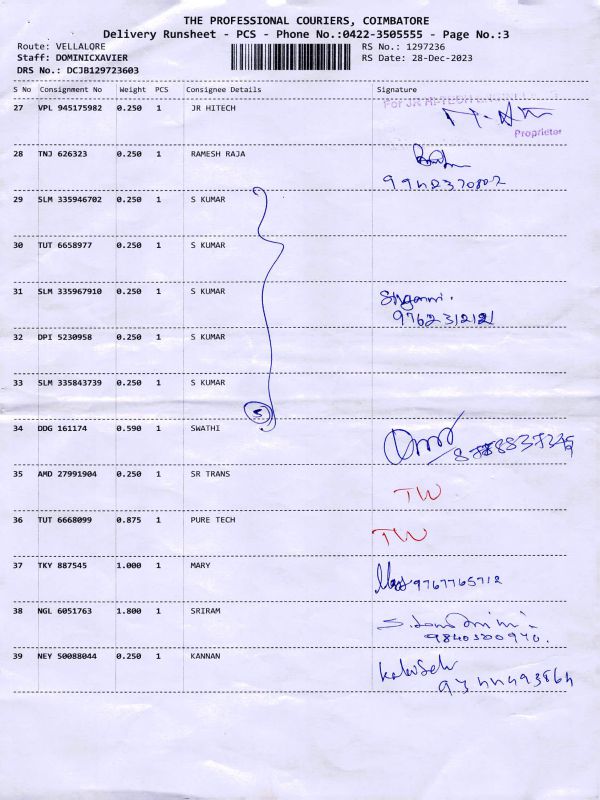 THE PROFESSIONAL COURIERS, COIMBATORE
Delivery Runsheet - PCS - Phone No.:0422-3505555 - Page No.:3
Route: VELLALORE RS No.: 1297236
Staff: DOMINICXAVIER RS Date: 28-Dec-2023
DRS No.: DCJB129723603
S No Consignment No Weight PCS Consignee Details Signature
For JR HITECH
27 VPL 945175982 0.250 1 JR HITECH
Proprietor
28 TNJ 626323 0.250 1 RAMESH RAJA
29 SLM 335946702 0.250 1 S KUMAR
30 TUT 6658977 0.250 1 S KUMAR
31 SLM 335967910 0.250 1 S KUMAR
9762312121
32 DPI 5230958 0.250 1 S KUMAR
33 SLM 335843739 0.250 1 S KUMAR
5
34 DDG 161174 0.590 1 SWATHI
35 AMD 27991904 0.250 1 SR TRANS
TW
36 TUT 6668099 0.875 1 PURE TECH
TW
37 TKY 887545 1.000 1 MARY
9767765712
38 NGL 6051763 1.800 1 SRIRAM
39 NEY 50088044 0.250 1 KANNAN